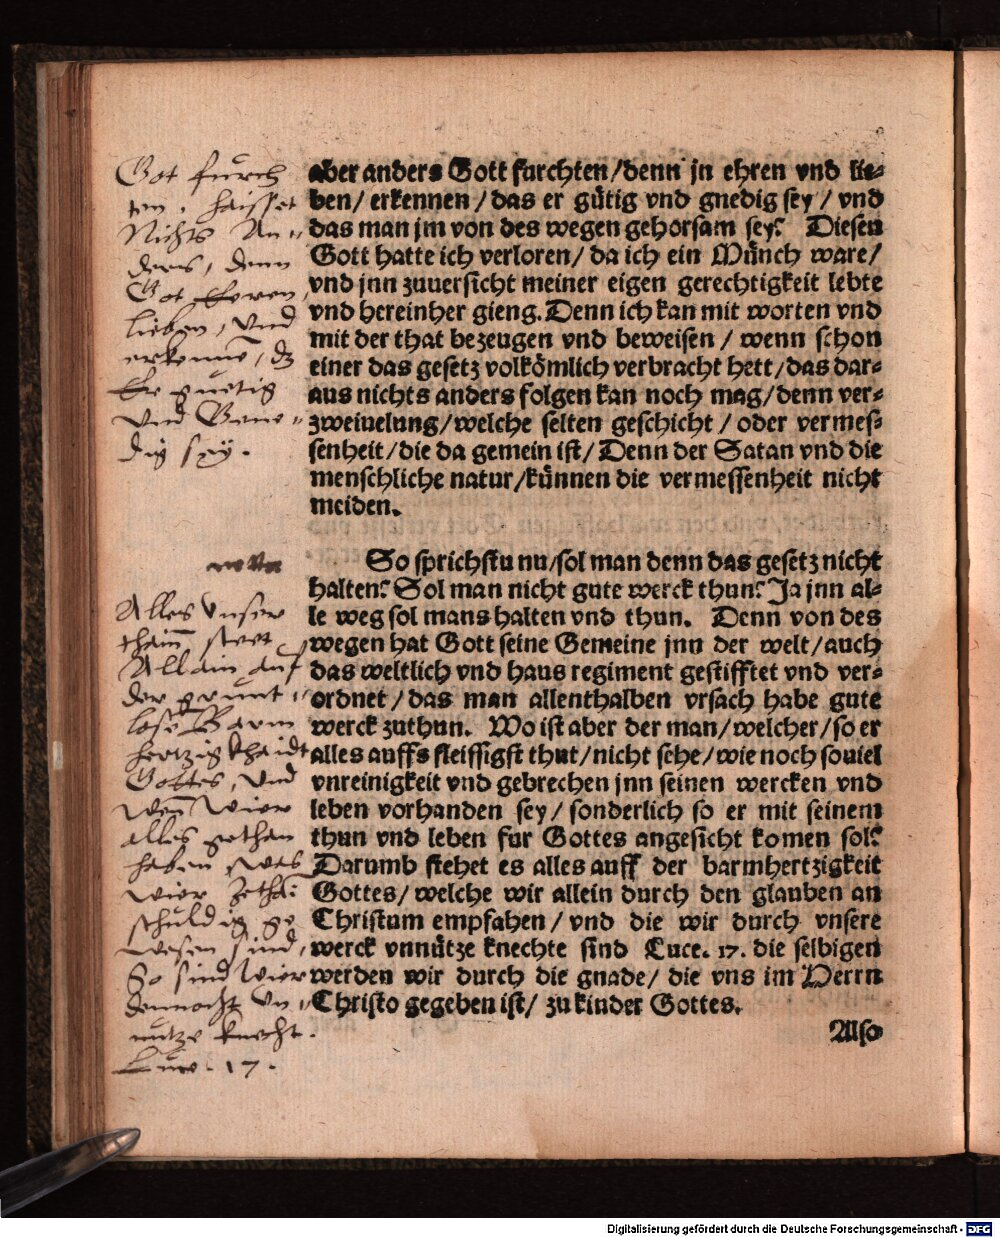 aber anders Gott furchten/denn jn ehren vnd lie⸗
ben/ erkennen/das er gütig vnd gnedig sey/ vnd
das man jm von des wegen gehorsam sey? Diesen
Gott hatte ich verloren/ da ich ein Münch ware/
vnd jnn zuuersicht meiner eigen gerechtigkeit lebte
vnd hereinher gieng. Denn ich kan mit worten vnd
mit der that bezeugen vnd beweisen/ wenn schon
einer das gesetz volkömlich verbracht hett/das dar⸗
aus nichts anders folgen kan noch mag/denn ver⸗
zweiuelung/welche selten geschicht/ oder vermes⸗
senheit/die da gemein ist/ Denn der Satan vnd die
menschliche natur/künnen die vermessenheit nicht
meiden.
So sprichstu nu/sol man denn das gesetz nicht
halten? Sol man nicht gute werck thun? Ja jnn al⸗
le weg sol mans halten vnd thun. Denn von des
wegen hat Gott seine Gemeine jnn der welt/auch
das weltlich vnd haus regiment gestifftet vnd ver⸗
ordnet/das man allenthalben vrsach habe gute
werck zuthun. Wo ist aber der man/welcher/so er
alles auffs fleissigst thut/nicht sehe/wie noch souiel
vnreinigkeit vnd gebrechen jnn seinen wercken vnd
leben vorhanden sey/ sonderlich so er mit seinem
thun vnd leben fur Gottes angesicht komen sol?
Darumb stehet es alles auff der barmhertzigkeit
Gottes/ welche wir allein durch den glauben an
Christum empfahen/ vnd die wir durch vnsere
werck vnnütze knechte sind Luce. 17. die selbigen
werden wir durch die gnade/ die vns im Herrn
Christo gegeben ist/ zu kinder Gottes.
Also
Got furch
ten. haisset
Nichts An⸗
ders, denn
Got Eeren,
lieben, vnd
erkennē, dz
Er guetig
vnd Gene⸗
dig sey.
Alles vnser
thain̄ steet
Allain auf
der grunt⸗
lose Barm
hertzigkhaidt
Gottes, vnd
wen̄ wier
alles gethan
haben was
wier
schuldig ge
wesen sind,
So sind wier
dennocht vn⸗
nutze knecht.
Luce. 17.
Digitalisierung gefördert durch die Deutsche Forschungsgemeinschaft - DFG